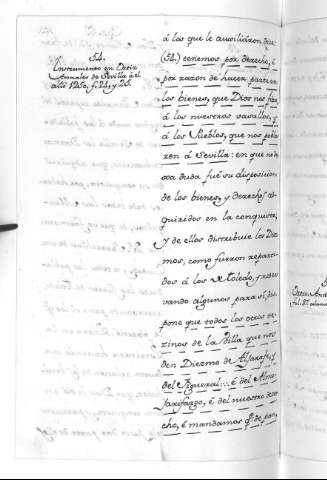 54.
Instrumento en Ortiz
Annales de Sevilla á el
año 1250. f. 24. y 25.
á los que le auxiliáron dice
(54.) tenemos por derecho, é
por razon de hacer parte en
los bienes, que Dios nos faze
á los nuestros vasallos, y
á los Pueblos, que nos pobla
ren á Sevilla: en que no de
xa duda fué su disposicion
de los bienes, y derechos ad
quiridos en la conquista,
y de ellos distribuie los Diez
mos, como fueron reparti
dos á los de Toledo, y reser
vando algunos para sí, dis
pone que todos los otros ve
zinos de la Villa que nos
den Diezmo de Aljarafe, y
del Figueral: é del Almo
jarifazgo, é del nuestro dere
cho, é mandamos q.e de pan,